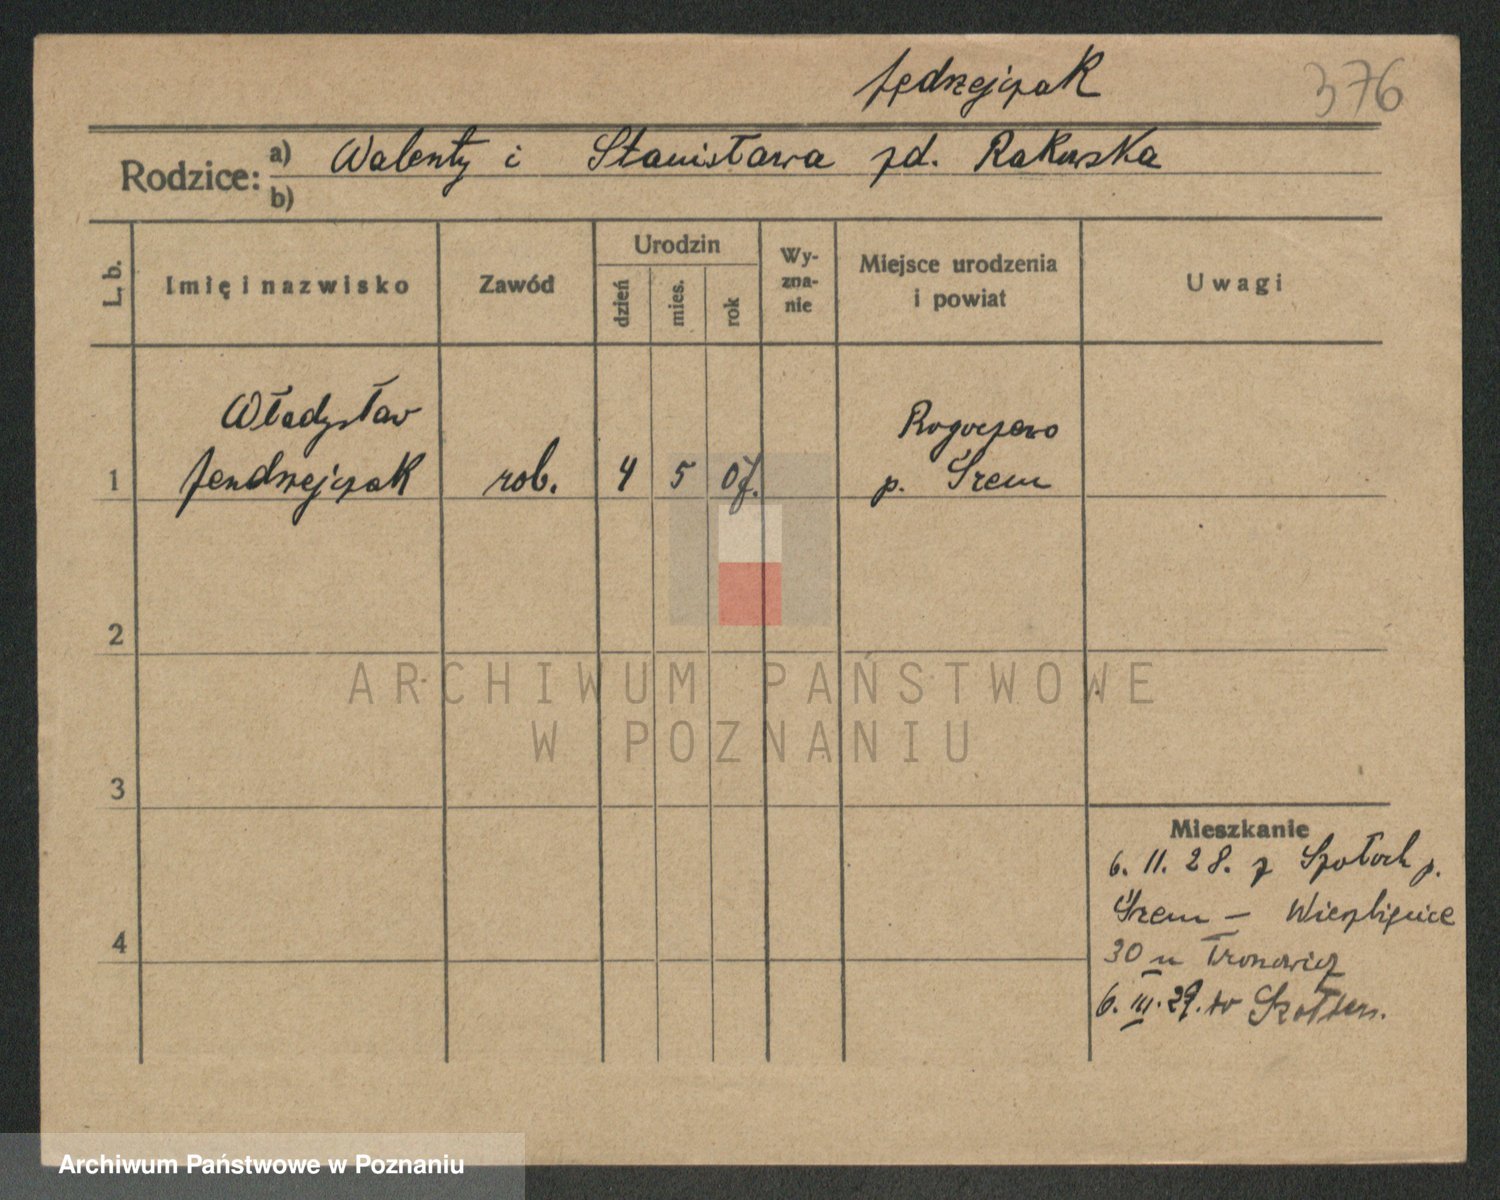 Jędrzejczak
376
Rodzice: a) Walenty i Stanisława zd. Rakowska
b)
L. b.
Imię i nazwisko
Zawód
Urodzin
dzień
mies.
rok
Wy-
zna-
nie
Miejsce urodzenia
i powiat
Uwagi
Władysław
1 Jendrzejczak rob. 4 5 07.
Rogaczewo
p. Śrem
2
3
4
Mieszkanie
6. 11. 28. z p.
Śrem –
30 u
6. III. 29. w
ARCHIWUM PAŃSTWOWE
W POZNANIU
Archiwum Państwowe w Poznaniu